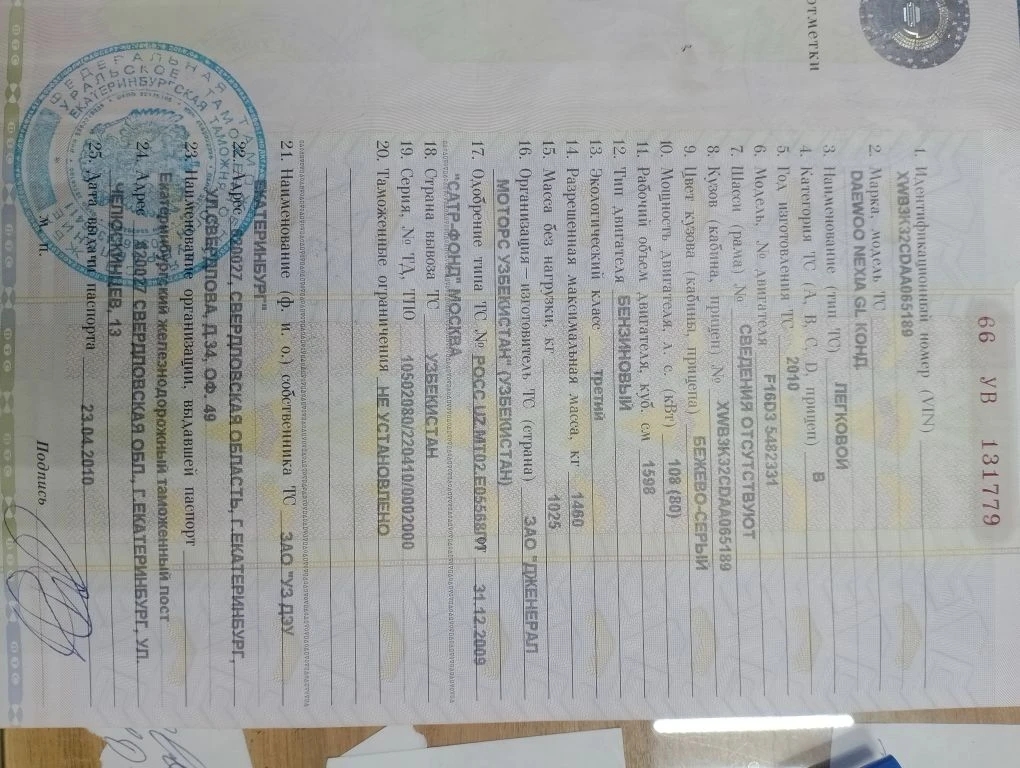 отметки
66 УВ 131779
1. Идентификационный номер (VIN)
XWB3K32CDAA065189
2. Марка, модель ТС
DAEWOO NEXIA GL КОНД
3. Наименование (тип ТС) ЛЕГКОВОЙ
4. Категория ТС (А, В, С, D, прицеп) В
5. Год изготовления ТС 2010
6. Модель, № двигателя F16D3 5482331
7. Шасси (рама) № СВЕДЕНИЯ ОТСУТСТВУЮТ
8. Кузов (кабина, прицеп) № XWB3K32CDAA065189
9. Цвет кузова (кабины, прицепа) БЕЖЕВО-СЕРЫЙ
10. Мощность двигателя, л. с. (кВт) 108 (80)
11. Рабочий объем двигателя, куб. см 1598
12. Тип двигателя БЕНЗИНОВЫЙ
13. Экологический класс третий
14. Разрешенная максимальная масса, кг 1460
15. Масса без нагрузки, кг 1025
16. Организация – изготовитель ТС (страна) ЗАО "ДЖЕНЕРАЛ
МОТОРС УЗБЕКИСТАН" (УЗБЕКИСТАН)
17. Одобрение типа ТС № РОСС UZ.МТ02.Е05568 31.12.2009
"САТР-ФОНД" МОСКВА
18. Страна вывоза ТС УЗБЕКИСТАН
19. Серия, № ТД, ТПО 10502080/220410/0002000
20. Таможенные ограничения НЕ УСТАНОВЛЕНО
21. Наименование (ф. и. о.) собственника ТС ЗАО "УЗ ДЭУ
ЕКАТЕРИНБУРГ"
22. Адрес 620027, СВЕРДЛОВСКАЯ ОБЛАСТЬ, Г.ЕКАТЕРИНБУРГ,
УЛ.СВЕРДЛОВА, Д.34, ОФ. 49
23. Наименование организации, выдавшей паспорт
Екатеринбургский железнодорожный таможенный пост
24. Адрес 620027, СВЕРДЛОВСКАЯ ОБЛ., Г.ЕКАТЕРИНБУРГ, УЛ.
ЧЕЛЮСКИНЦЕВ, 13
25. Дата выдачи паспорта 23.04.2010
М. П.
Подпись
ФЕДЕРАЛЬНАЯ
УРАЛЬСКОЕ
ЕКАТЕРИНБУРГСКАЯ ТАМОЖНЯ